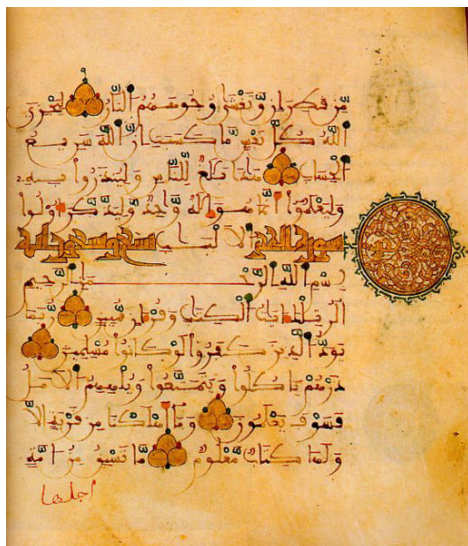 مِّن قَطِرَانٍ وَتَغْشَىٰ وُجُوهَهُمُ النَّارُ لِيَجْزِيَ
اللَّهُ كُلَّ نَفْسٍ مَّا كَسَبَتْ إِنَّ اللَّهَ سَرِيعُ
الْحِسَابِ هَٰذَا بَلَٰغٌ لِّلنَّاسِ وَلِيُنذَرُوا بِهِ
وَلِيَعْلَمُوا أَنَّمَا هُوَ إِلَٰهٌ وَٰحِدٌ وَلِيَذَّكَّرَ أُولُوا
سورة الحجر الالباب تسع وتسعون اية
بسم الله الرحمن الرحيم
الر تِلْكَ ءَايَٰتُ الْكِتَٰبِ وَقُرْءَانٍ مُّبِينٍ رُّبَمَا
يَوَدُّ الَّذِينَ كَفَرُوا لَوْ كَانُوا مُسْلِمِينَ
ذَرْهُمْ يَاكُلُوا وَيَتَمَتَّعُوا وَيُلْهِهِمُ الْأَمَلُ
فَسَوْفَ يَعْلَمُونَ وَمَا أَهْلَكْنَا مِن قَرْيَةٍ إِلَّا
وَلَهَا كِتَابٌ مَّعْلُومٌ مَّا تَسْبِقُ مِنْ أُمَّةٍ
اجلها